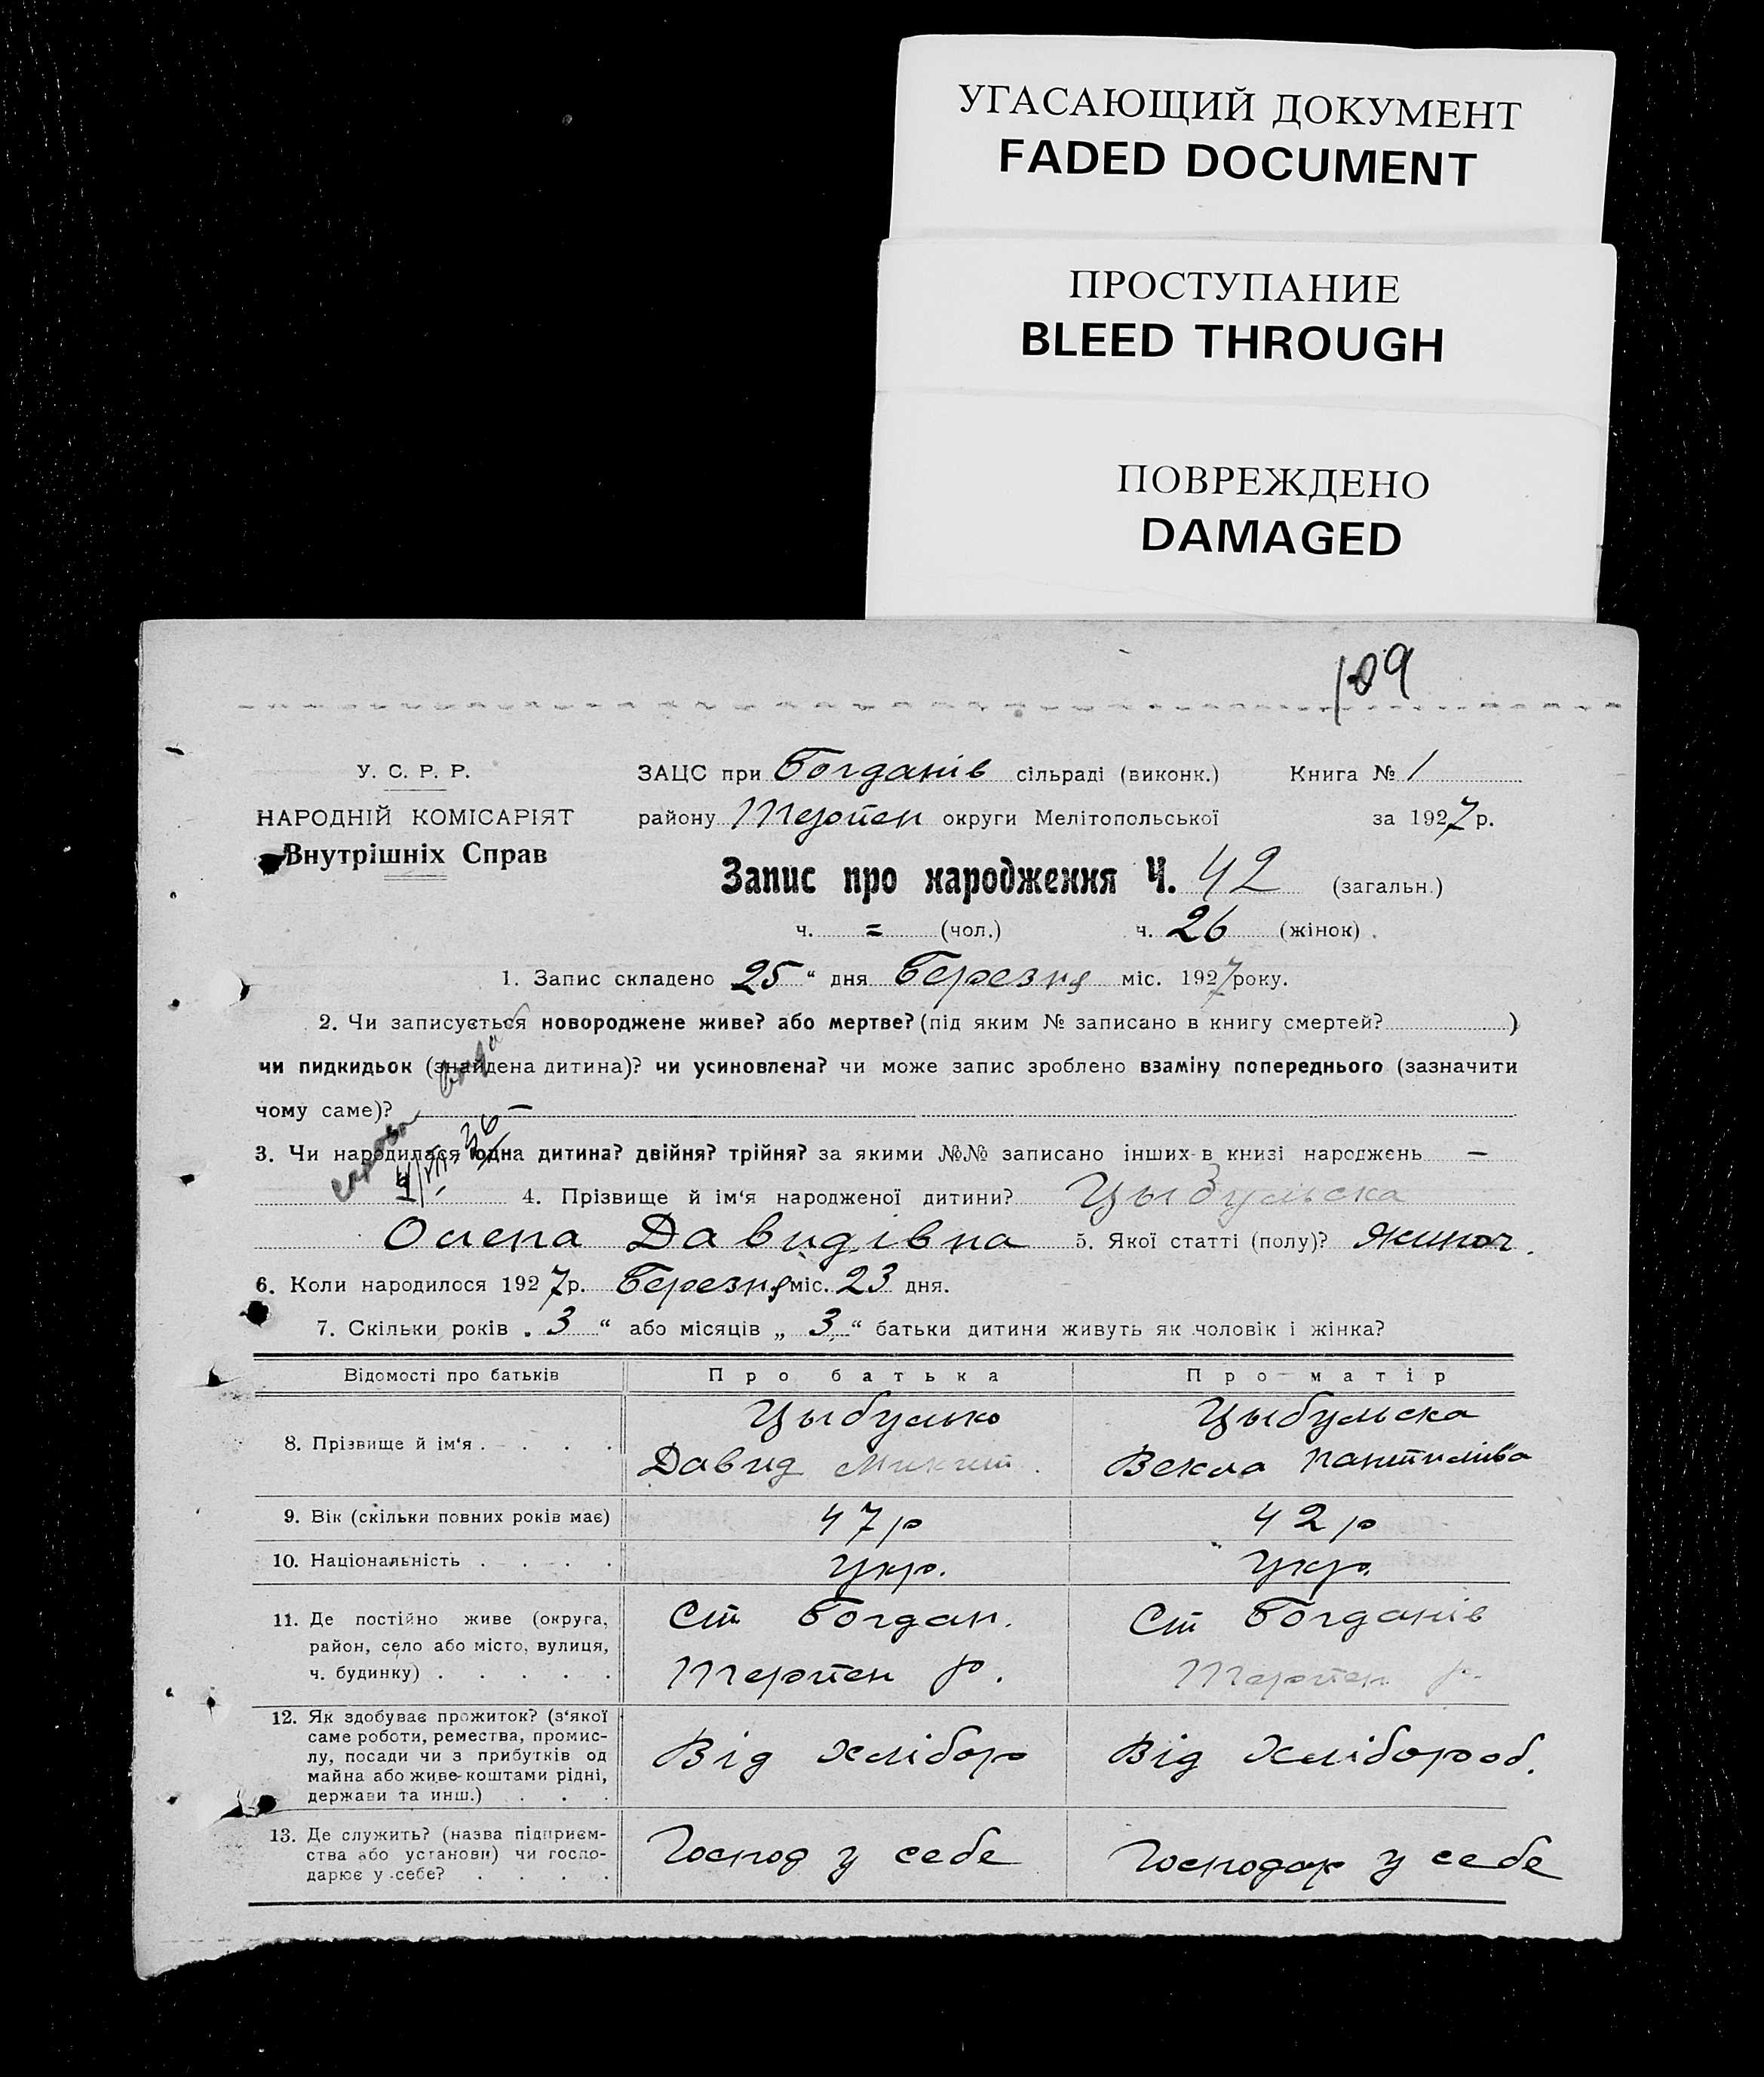 УГАСАЮЩИЙ ДОКУМЕНТ
FADED DOCUMENT
ПРОСТУПАНИЕ
BLEED THROUGH
ПОВРЕЖДЕНО
DAMAGED
109
У. С. Р. Р.
НАРОДНІЙ КОМІСАРІЯТ
Внутрішніх Справ
ЗАЦС при Богданів сільраді (виконк.) Книга № 1
району Терпен округи Мелітопольської за 1927 р.
Запис про народження Ч. 42 (загальн.)
ч. = (чол.) ч. 26 (жінок)
1. Запис складено 25 “ дня Березня міс. 1927 року.
2. Чи записується новороджене живе? або мертве? (під яким № записано в книгу смертей? )
чи пидкидьок (знайдена дитина)? чи усиновлена? чи може запис зроблено взаміну попереднього (зазначити
чому саме)? —
3. Чи народилася одна дитина? двійня? трійня? за якими №№ записано інших в книзі народжень —
4. Прізвище й ім‘я народженої дитини? Цыбульска
Олена Давидівна 5. Якої статті (полу)? Жиноч.
6. Коли народилося 1927 р. Березня міс. 23 дня.
7. Скільки років „ 3 “ або місяців „ 3 “ батьки дитини живуть як чоловік і жінка?
Відомості про батьків Про батька Про матір
8. Прізвище й ім‘я . . . .
Цыбулько
Давид Микит.
Цыбульска
Векла
9. Вік (скільки повних років має) 47 р 42 р
10. Національність . . . . Укр. Укр.
11. Де постійно живе (округа,
район, село або місто, вулиця,
ч. будинку) . . . . .
Ст Богдан.
Терпен р.
Ст Богданів
Терпен р.
12. Як здобуває прожиток? (з‘якої
саме роботи, ремества, промис-
лу, посади чи з прибутків од
майна або живе коштами рідні,
держави та инш.) . . .
Від хлібор
Від Хлібороб.
13. Де служить? (назва підприєм-
ства або установи) чи госпо-
дарює у себе? . . . .
Господ у себе
Господар у себе